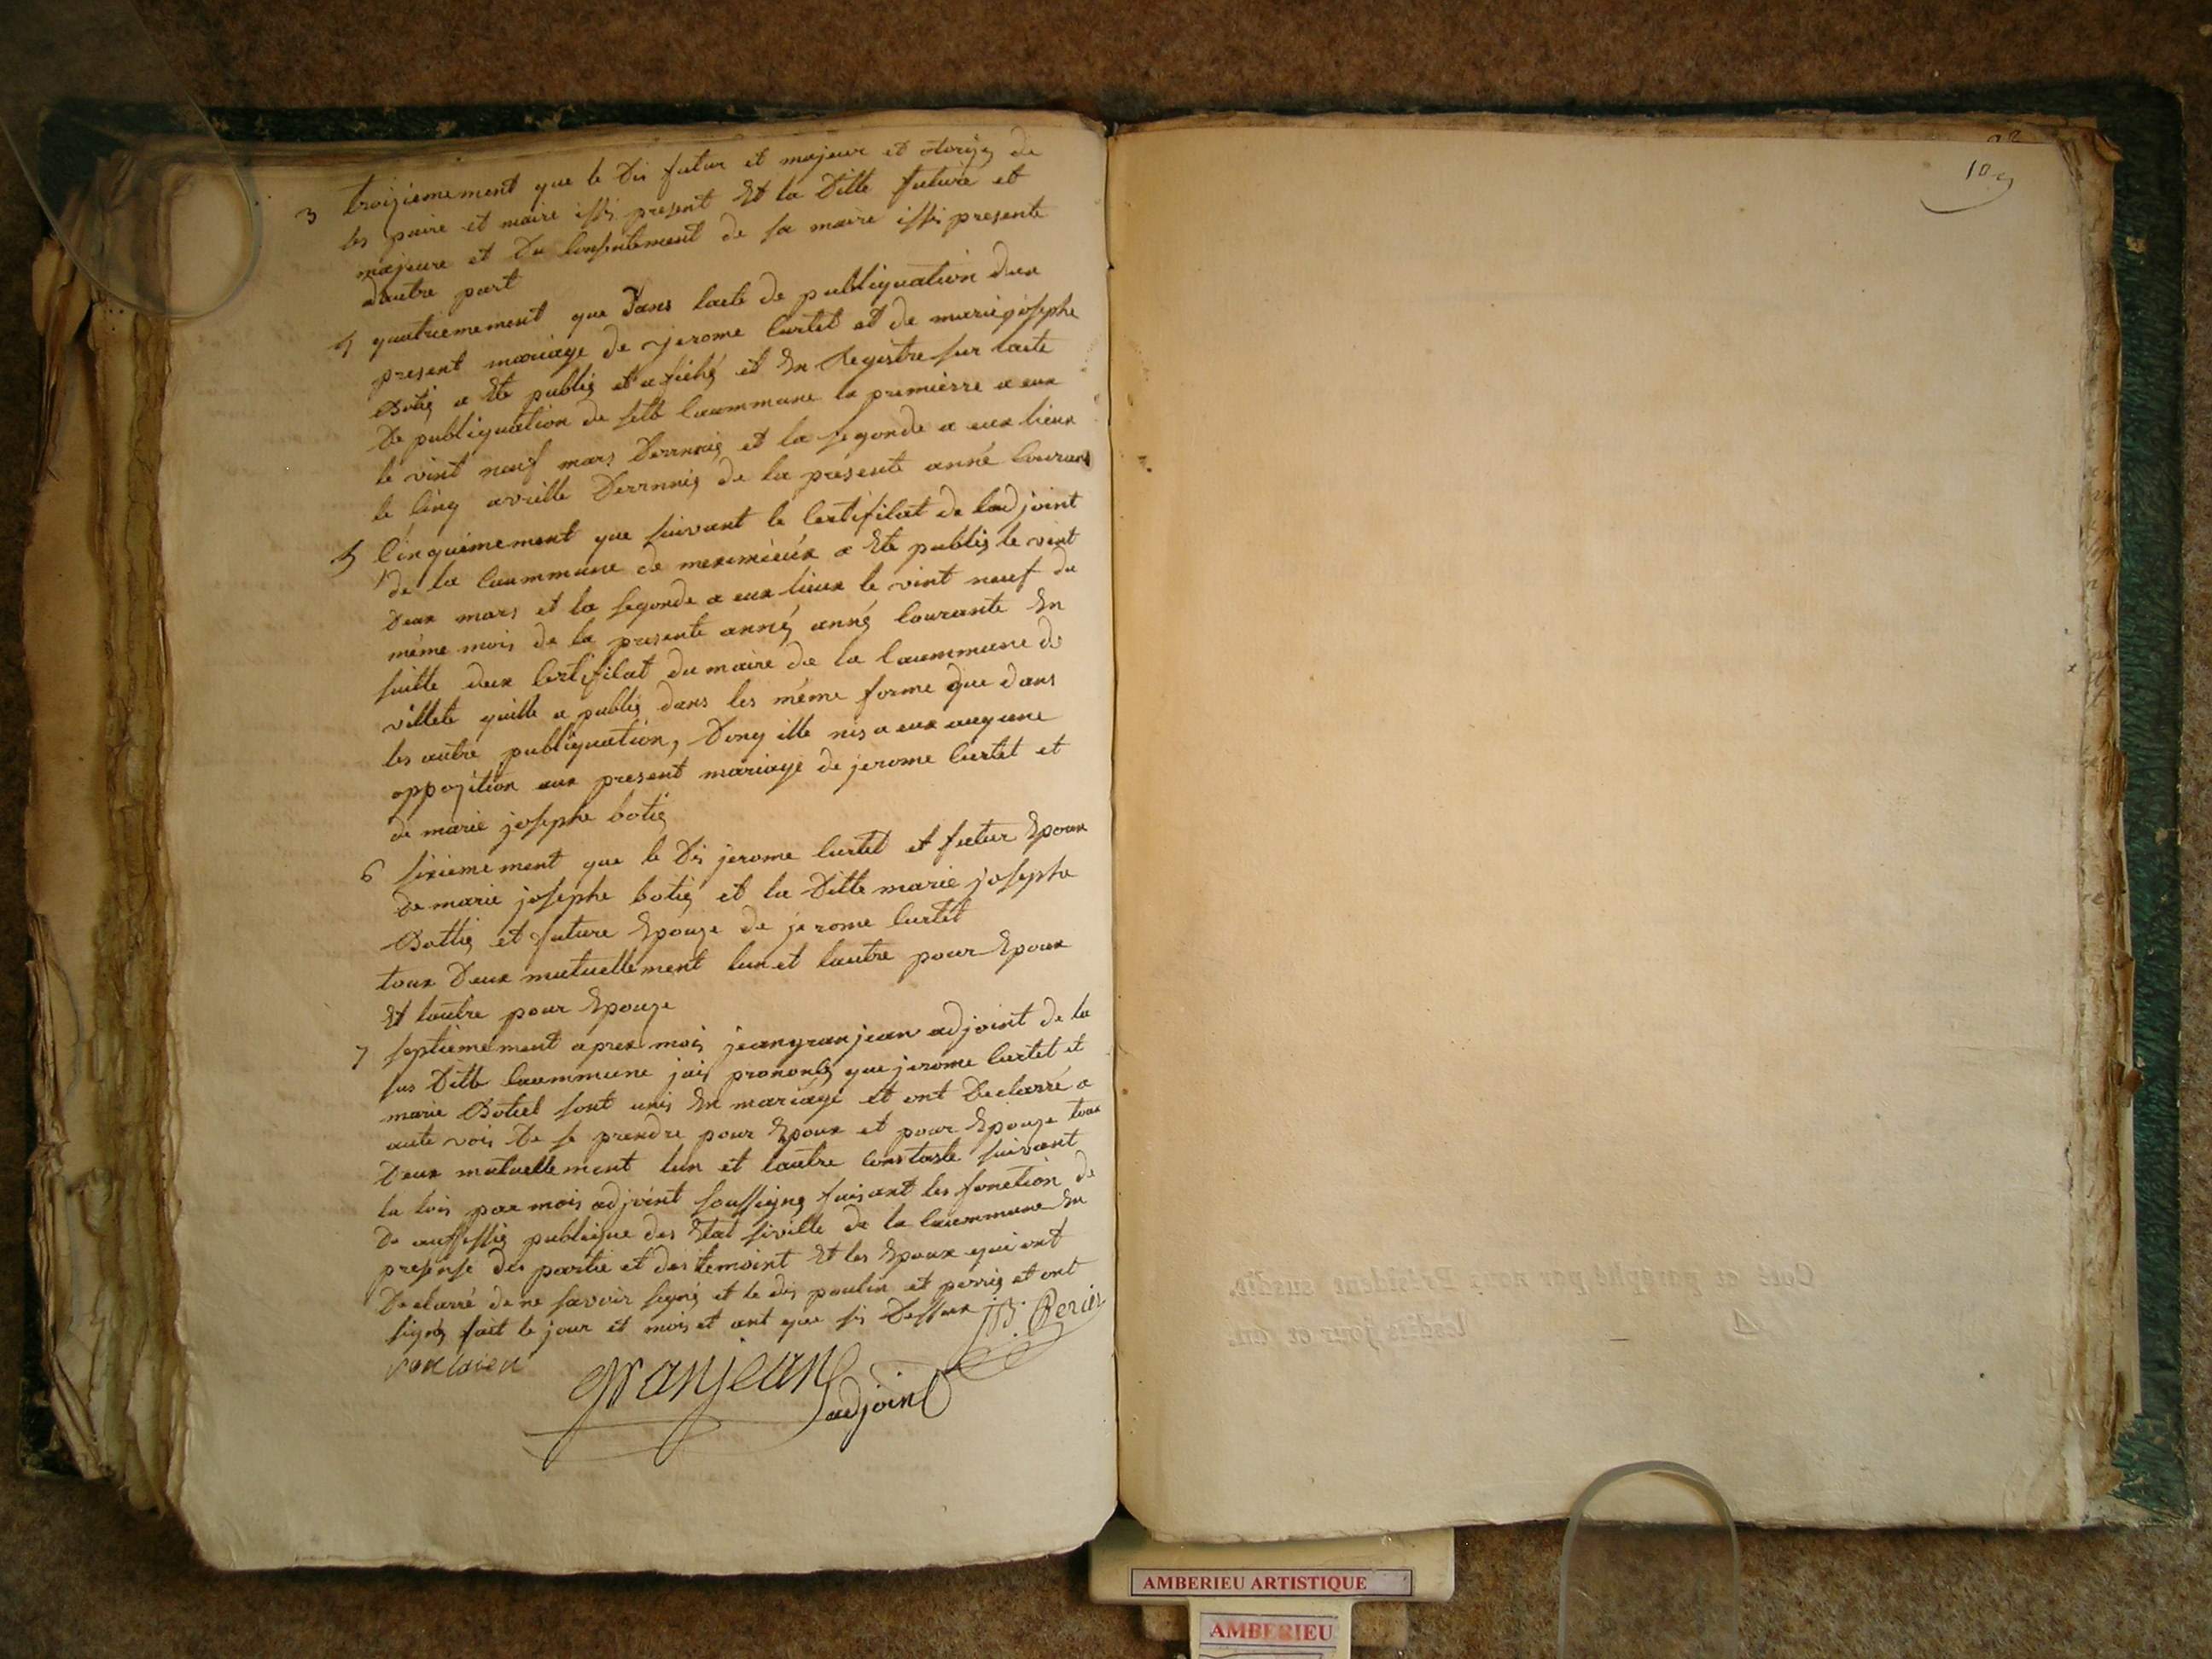 3 troizièmement que le Dis futur et majeur et otorizę de
ses paire et maire issi present Et la Ditte future et
majeure et Du consentement de sa maire issi presente
dautre part
4 quatriemement que Dans lacte de publiquation dux
present mariage de jerome Curtet et de marie josephe
Botię a Ete publię et afiché et En Registre sur lacte
De publiquation de sette Coummune la premierre a eux
le vint neuf mars Dernnię et la segonde a eux lieux
le cinq avrille Dernnię de la présente anné Courant
5 Cinquiemement que suivant le Certificat de ladjoint
de la Coummune de meximieux a Ete publię le vint
Deux mars et la segonde a eux lieux le vint neuf du
même mois de la presente anné anné Courante En
suitte dux Certificat du maire de la Coummune de
villete quille a publię dans les même forme que dans
les autre publiquation, Donq ille nis a eux auqune
oppozition aux present mariage de jerome Curtet et
de marie josephe botię
6 sixiemement que le Dis jerome Curtet et futur Epoux
de marie josephe botię et la Ditte marie josepha
Bottię et future Epouze de jerome Curtet
toux Deux mutuellement lun et lautre pour Epoux
Et lautre pour Epouze
7 septiemement aprex mois jeangranjean adjoint de la
sus Ditte Coummune jais prononcę que jerome Curtet et
marie Botiet sont unis En mariage et ont Declarré a
aute vois De se prendre pour Epoux et pour Epouze toux
Deux mutuellement lun et lautre Constaste suivant
la lois par mois adjoint soussigné faisant les fonction de
De aufissię publique des Etat siville de la Coummune En
presense des partie et des temoint Et les Epoux qui ont
Declarré de ne savoir signé et le dis poulin et perrię et ont
signé fait le jour et mois et ant que si Dessux JB. Perier
granjean
adjoint
109
Coté et paraphé par nous Président susdit,
lesdits jour et an.
AMBERIEU ARTISTIQUE
AMBERIEU